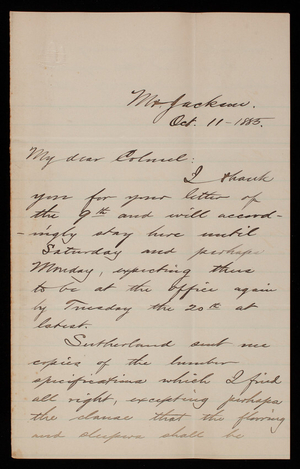 Mt. Jackson.
Oct. 11-1885.
My dear Colonel:
I thank
you for your letter of
the 9th and will accord-
-ingly stay here until
Saturday and perhaps
Monday, expecting thus
to be at the office again
by Tuesday the 20th at
latest.
Sutherland sent me
copies of the lumber
specifications which I find
all right, excepting perhaps
the clause that the flooring
and sleepers shall be